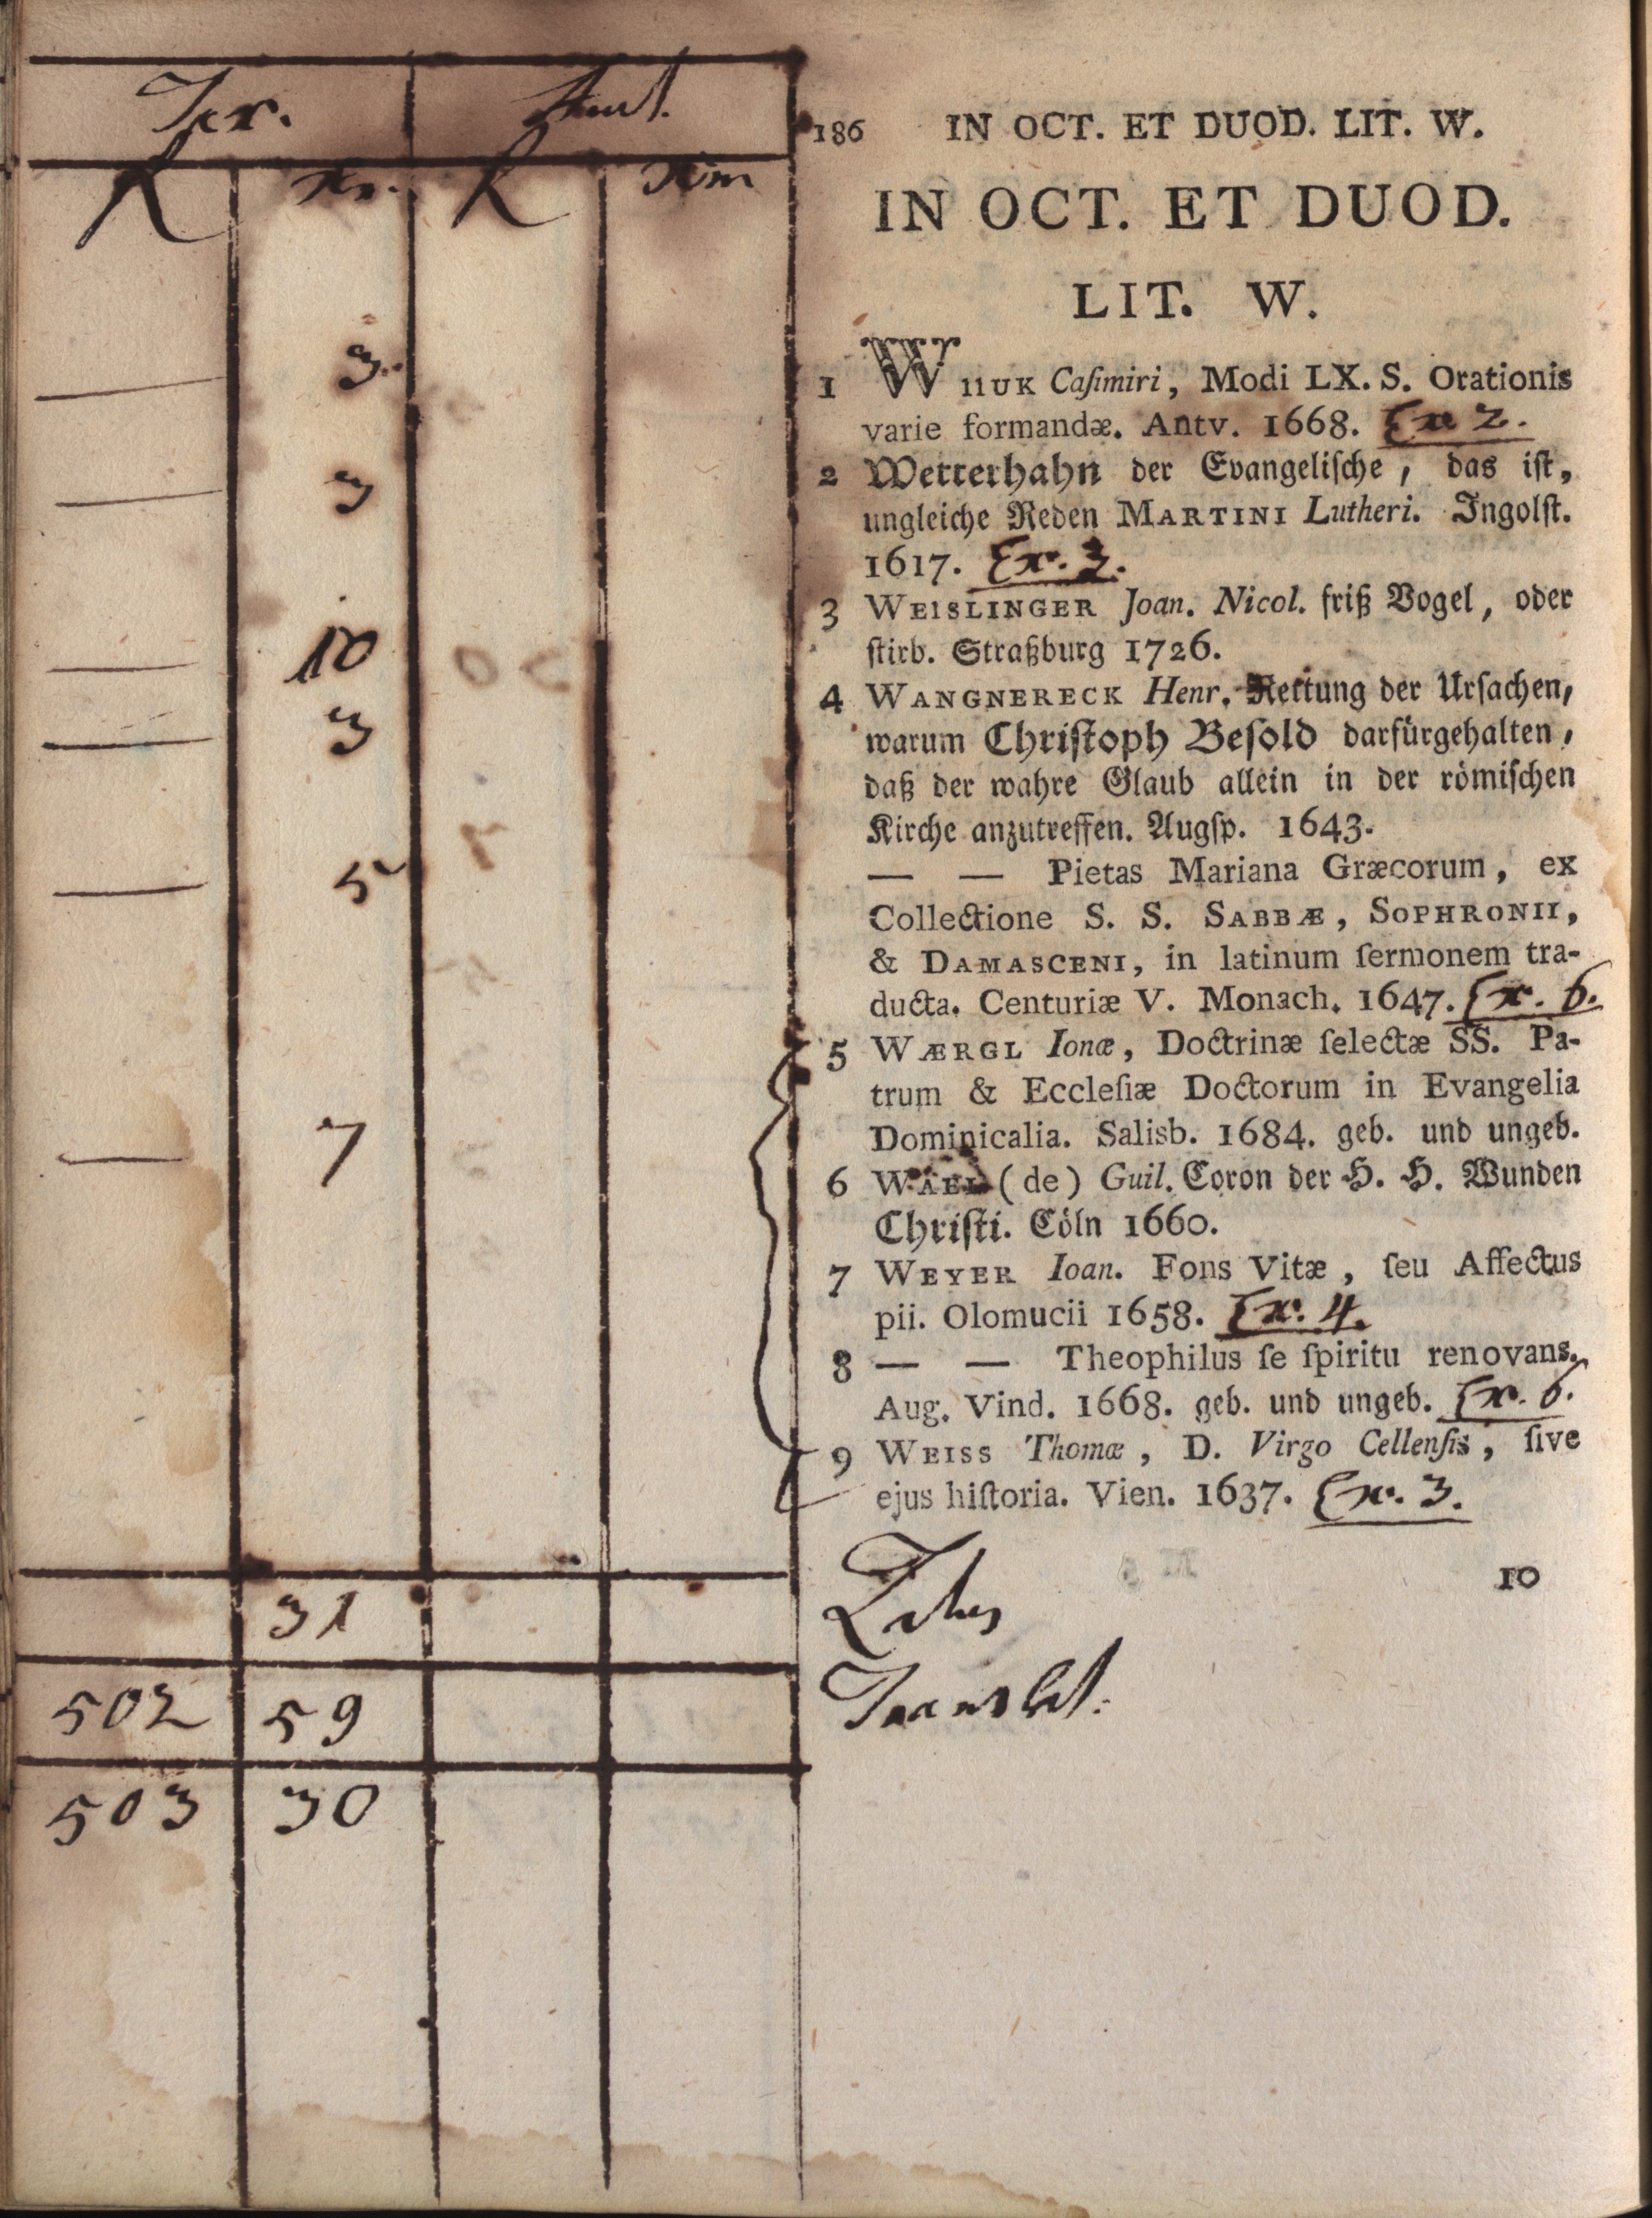 186 IN OCT. ET DUOD. LIT. W.
IN OCT. ET DUOD.
LIT. W.
1 WIIUK Caſimiri, Modi LX. S. Orationis
varie formandæ. Antv. 1668. Ex 2.
2 Wetterhahn der Evangeliſche, das iſt,
ungleiche Reden MARTINI Lutheri. Ingolſt.
1617. Ex. 3.
3 WEISLINGER Joan. Nicol. friß Vogel, oder
ſtirb. Straßburg 1726.
4 WANGNERECK Henr. Rettung der Urſachen,
warum Chriſtoph Beſold darfürgehalten,
daß der wahre Glaub allein in der römiſchen
Kirche anzutreffen. Augſp. 1643.
— — Pietas Mariana Græcorum, ex
Collectione S. S. SABBÆ, SOPHRONII,
& DAMASCENI, in latinum ſermonem tra-
ducta. Centuriæ V. Monach. 1647. Ex. 6.
5 WÆRGL Ionæ, Doctrinæ ſelectæ SS. Pa-
trum & Eccleſiæ Doctorum in Evangelia
Dominicalia. Salisb. 1684. geb. und ungeb.
6 WAEL (de) Guil. Coron der H. H. Wunden
Chriſti. Cöln 1660.
7 WEYER Ioan. Fons Vitæ, ſeu Affectus
pii. Olomucii 1658. Ex. 4.
8 — — Theophilus ſe ſpiritu renovans.
Aug. Vind. 1668. geb. und ungeb. Ex. 6.
9 WEISS Thomæ, D. Virgo Cellenſis, ſive
ejus hiſtoria. Vien. 1637. Ex. 3.
10
R Xr. R
— 3
— 3
— 10
— 3
— 5
— 7
31 Latus
502 59 Translat:
503 30